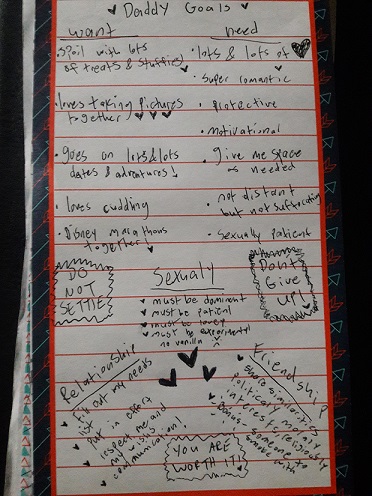 Daddy Goals
want
need
spoil with lots
of treats & stuffies!
lots & lots of
super romantic
loves taking pictures
together
protective
motivational
goes on lots & lots
dates & adventures!
give me space
needed
loves cuddling
not distant
but not suffocating
Disney marathons
together
sexually patient
DO
NOT
SETTLE
Sexualy
must be dominent
must be patient
must be lovey
must be experimental
no vanilla
Dont
Give
up!
Relationship
put my needs
put in effort
respect me and
my wishes
communication!
Friendship
share similarities
someone to
smoke with
YOU ARE
WORTH IT!